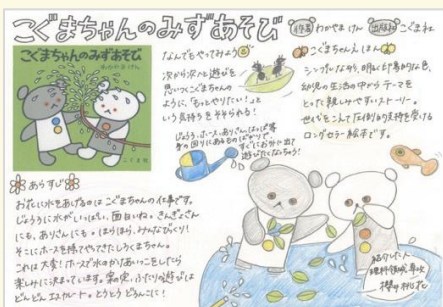 こぐまちゃんのみずあそび
作者 わかやま けん
出版社 こぐま社
こぐまちゃんのみずあそび
わかやまけん
こぐま社
なんでもやってみよう
次から次へと遊びを
思いつくこぐまちゃんの
ように、「もっとやりたい！」と
いう気持ちをそそられる！
じょうろ、ホース、ありさん、はっぱ等
身の回りにあるものばかりで
すぐにお外に出て
遊びたくなっちゃう！
こぐまちゃんえほん
シンプルながら、明るく印象的な色、
幼児の生活の中から テーマを
とった親しみやすいストーリー。
世代をこえて圧倒的支持を受ける
ロングセラー絵本です。
あらすじ
お花に水をあげるのは こぐまちゃんの仕事です。
じょうろに水がいっぱい、面白いね。きんぎょさん
にも、ありさんにも。
そこにホースを持ってやってきたしろくまちゃん。
これは大変！ホースで水のかけあいっこをしたら
楽しいに決まっています。案の定、ふたりの遊びは
どんどんエスカレート。とうとう どろんこに！
紹介したい